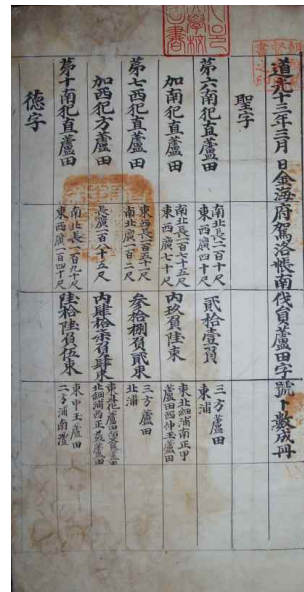 道光十三年三月 日金海府駕洛帳南伐員蘆田字號卜數成冊
聖字
第六南犯直蘆田
南北長二百二十尺
東西廣四十尺
貳拾壹負
三方蘆田
東浦
加南犯直蘆田
南北長一百七十五尺
東西廣七十尺
內玖負陸束
東北細浦南正甲
蘆田西仲玉蘆田
第七西犯直蘆田
東西長二百五十一尺
南北廣一百二尺
參拾捌負貳束
三方蘆田
北浦
加西犯方蘆田
長廣一百八十五尺
內肆拾柒負肆束
北細浦西正義蘆田
第十南犯直蘆田
南北長一百九十尺
東西廣一百四十尺
陸拾陸負伍束
東甲玉蘆田
二方浦南澧
德字